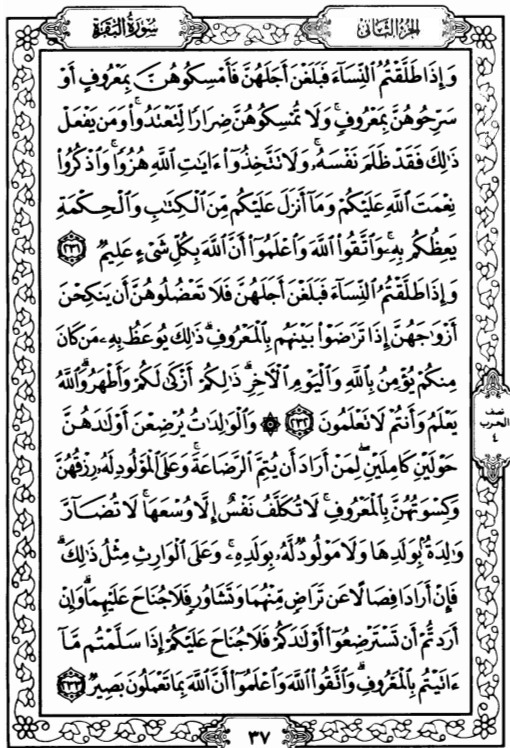 سُورَةُ البَقَرَةِ
الجُزءُ الثَّانِى
وَإِذَا طَلَّقْتُمُ ٱلنِّسَآءَ فَبَلَغْنَ أَجَلَهُنَّ فَأَمْسِكُوهُنَّ بِمَعْرُوفٍ أَوْ
سَرِّحُوهُنَّ بِمَعْرُوفٍۚ وَلَا تُمْسِكُوهُنَّ ضِرَارًا لِّتَعْتَدُوا۟ۚ وَمَن يَفْعَلْ
ذَٰلِكَ فَقَدْ ظَلَمَ نَفْسَهُۥۚ وَلَا تَتَّخِذُوٓا۟ ءَايَٰتِ ٱللَّهِ هُزُوًاۚ وَٱذْكُرُوا۟
نِعْمَتَ ٱللَّهِ عَلَيْكُمْ وَمَآ أَنزَلَ عَلَيْكُم مِّنَ ٱلْكِتَٰبِ وَٱلْحِكْمَةِ
يَعِظُكُم بِهِۦۚ وَٱتَّقُوا۟ ٱللَّهَ وَٱعْلَمُوٓا۟ أَنَّ ٱللَّهَ بِكُلِّ شَىْءٍ عَلِيمٌ ٢٣١
وَإِذَا طَلَّقْتُمُ ٱلنِّسَآءَ فَبَلَغْنَ أَجَلَهُنَّ فَلَا تَعْضُلُوهُنَّ أَن يَنكِحْنَ
أَزْوَٰجَهُنَّ إِذَا تَرَٰضَوْا۟ بَيْنَهُم بِٱلْمَعْرُوفِۗ ذَٰلِكَ يُوعَظُ بِهِۦ مَن كَانَ
مِنكُمْ يُؤْمِنُ بِٱللَّهِ وَٱلْيَوْمِ ٱلْـَٔاخِرِۗ ذَٰلِكُمْ أَزْكَىٰ لَكُمْ وَأَطْهَرُۗ وَٱللَّهُ
يَعْلَمُ وَأَنتُمْ لَا تَعْلَمُونَ ٢٣٢ ۞ وَٱلْوَٰلِدَٰتُ يُرْضِعْنَ أَوْلَٰدَهُنَّ
حَوْلَيْنِ كَامِلَيْنِۖ لِمَنْ أَرَادَ أَن يُتِمَّ ٱلرَّضَاعَةَۚ وَعَلَى ٱلْمَوْلُودِ لَهُۥ رِزْقُهُنَّ
وَكِسْوَتُهُنَّ بِٱلْمَعْرُوفِۚ لَا تُكَلَّفُ نَفْسٌ إِلَّا وُسْعَهَاۚ لَا تُضَآرَّ
وَٰلِدَةٌۢ بِوَلَدِهَا وَلَا مَوْلُودٌ لَّهُۥ بِوَلَدِهِۦۚ وَعَلَى ٱلْوَارِثِ مِثْلُ ذَٰلِكَۗ
فَإِنْ أَرَادَا فِصَالًا عَن تَرَاضٍ مِّنْهُمَا وَتَشَاوُرٍ فَلَا جُنَاحَ عَلَيْهِمَاۗ وَإِنْ
أَرَدتُّمْ أَن تَسْتَرْضِعُوٓا۟ أَوْلَٰدَكُمْ فَلَا جُنَاحَ عَلَيْكُمْ إِذَا سَلَّمْتُم مَّآ
ءَاتَيْتُم بِٱلْمَعْرُوفِۗ وَٱتَّقُوا۟ ٱللَّهَ وَٱعْلَمُوٓا۟ أَنَّ ٱللَّهَ بِمَا تَعْمَلُونَ بَصِيرٌ ٢٣٣
نصف
الحزب
٤
٣٧